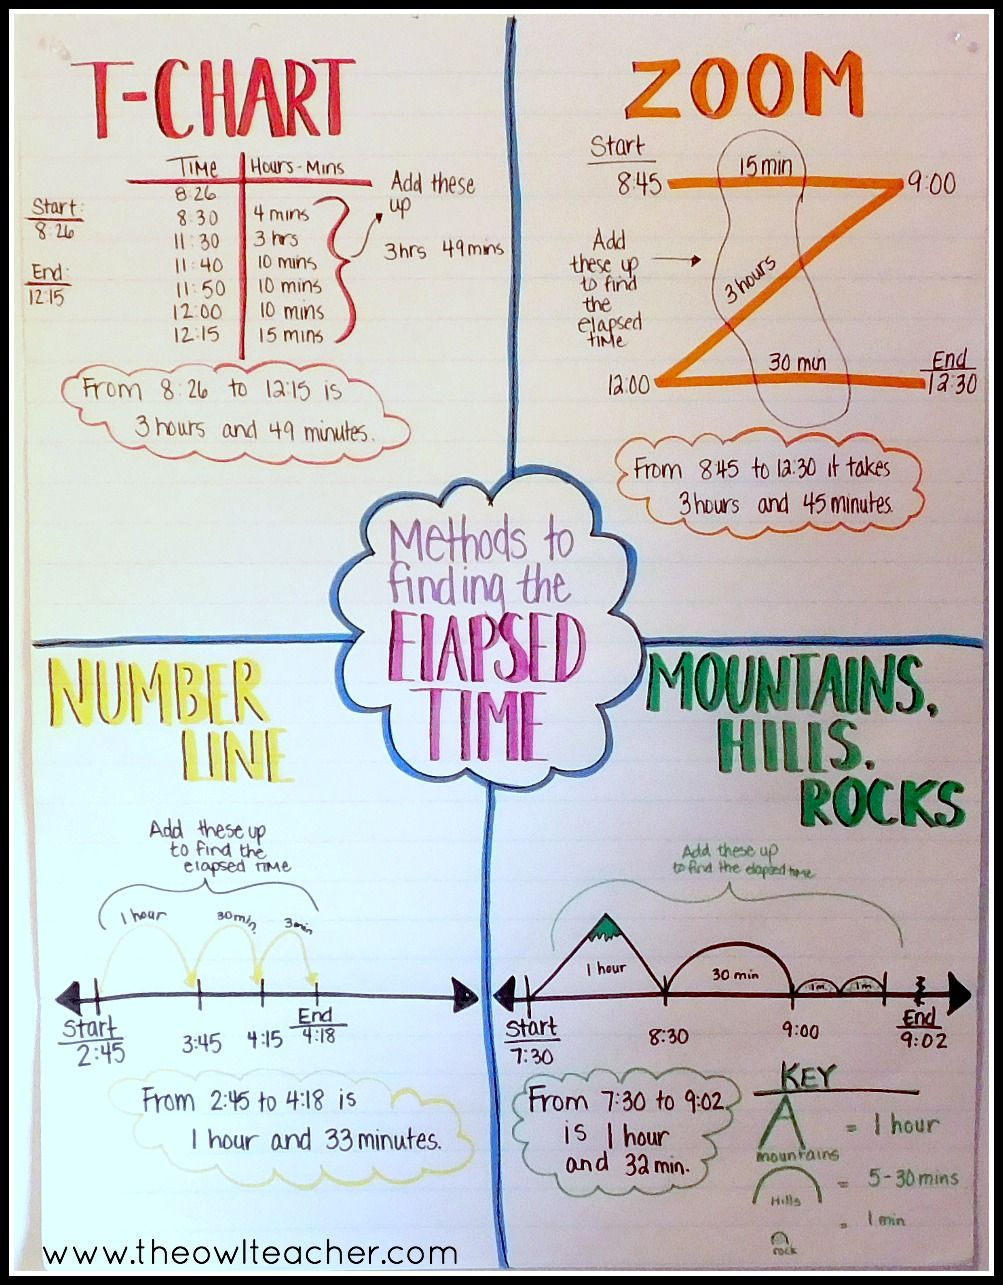 T-CHART
TIME Hours - Mins
8:26
8:30 4 mins
11:30 3 hrs
11:40 10 mins
11:50 10 mins
12:00 10 mins
12:15 15 mins
Start:
8:26
End:
12:15
Add these
up
3hrs 49mins
From 8:26 to 12:15 is
3 hours and 49 minutes.
ZOOM
Start
8:45
15 min
9:00
Add
these up
to find
the
elapsed
time
3 hours
12:00
30 min
End
12:30
From 8:45 to 12:30 it takes
3 hours and 45 minutes.
Methods to
finding the
ELAPSED
TIME
NUMBER
LINE
Add these up
to find the
elapsed time
1 hour 30 min 3 min
Start
2:45
3:45
4:15
End
4:18
From 2:45 to 4:18 is
1 hour and 33 minutes.
MOUNTAINS,
HILLS,
ROCKS
Add these up
to find the elapsed time
1 hour 30 min 1m 1m
Start
7:30
8:30
9:00
End
9:02
From 7:30 to 9:02
is 1 hour
and 32 min.
KEY
= 1 hour
mountains
= 5-30 mins
Hills
= 1 min
rock
www.theowlteacher.com